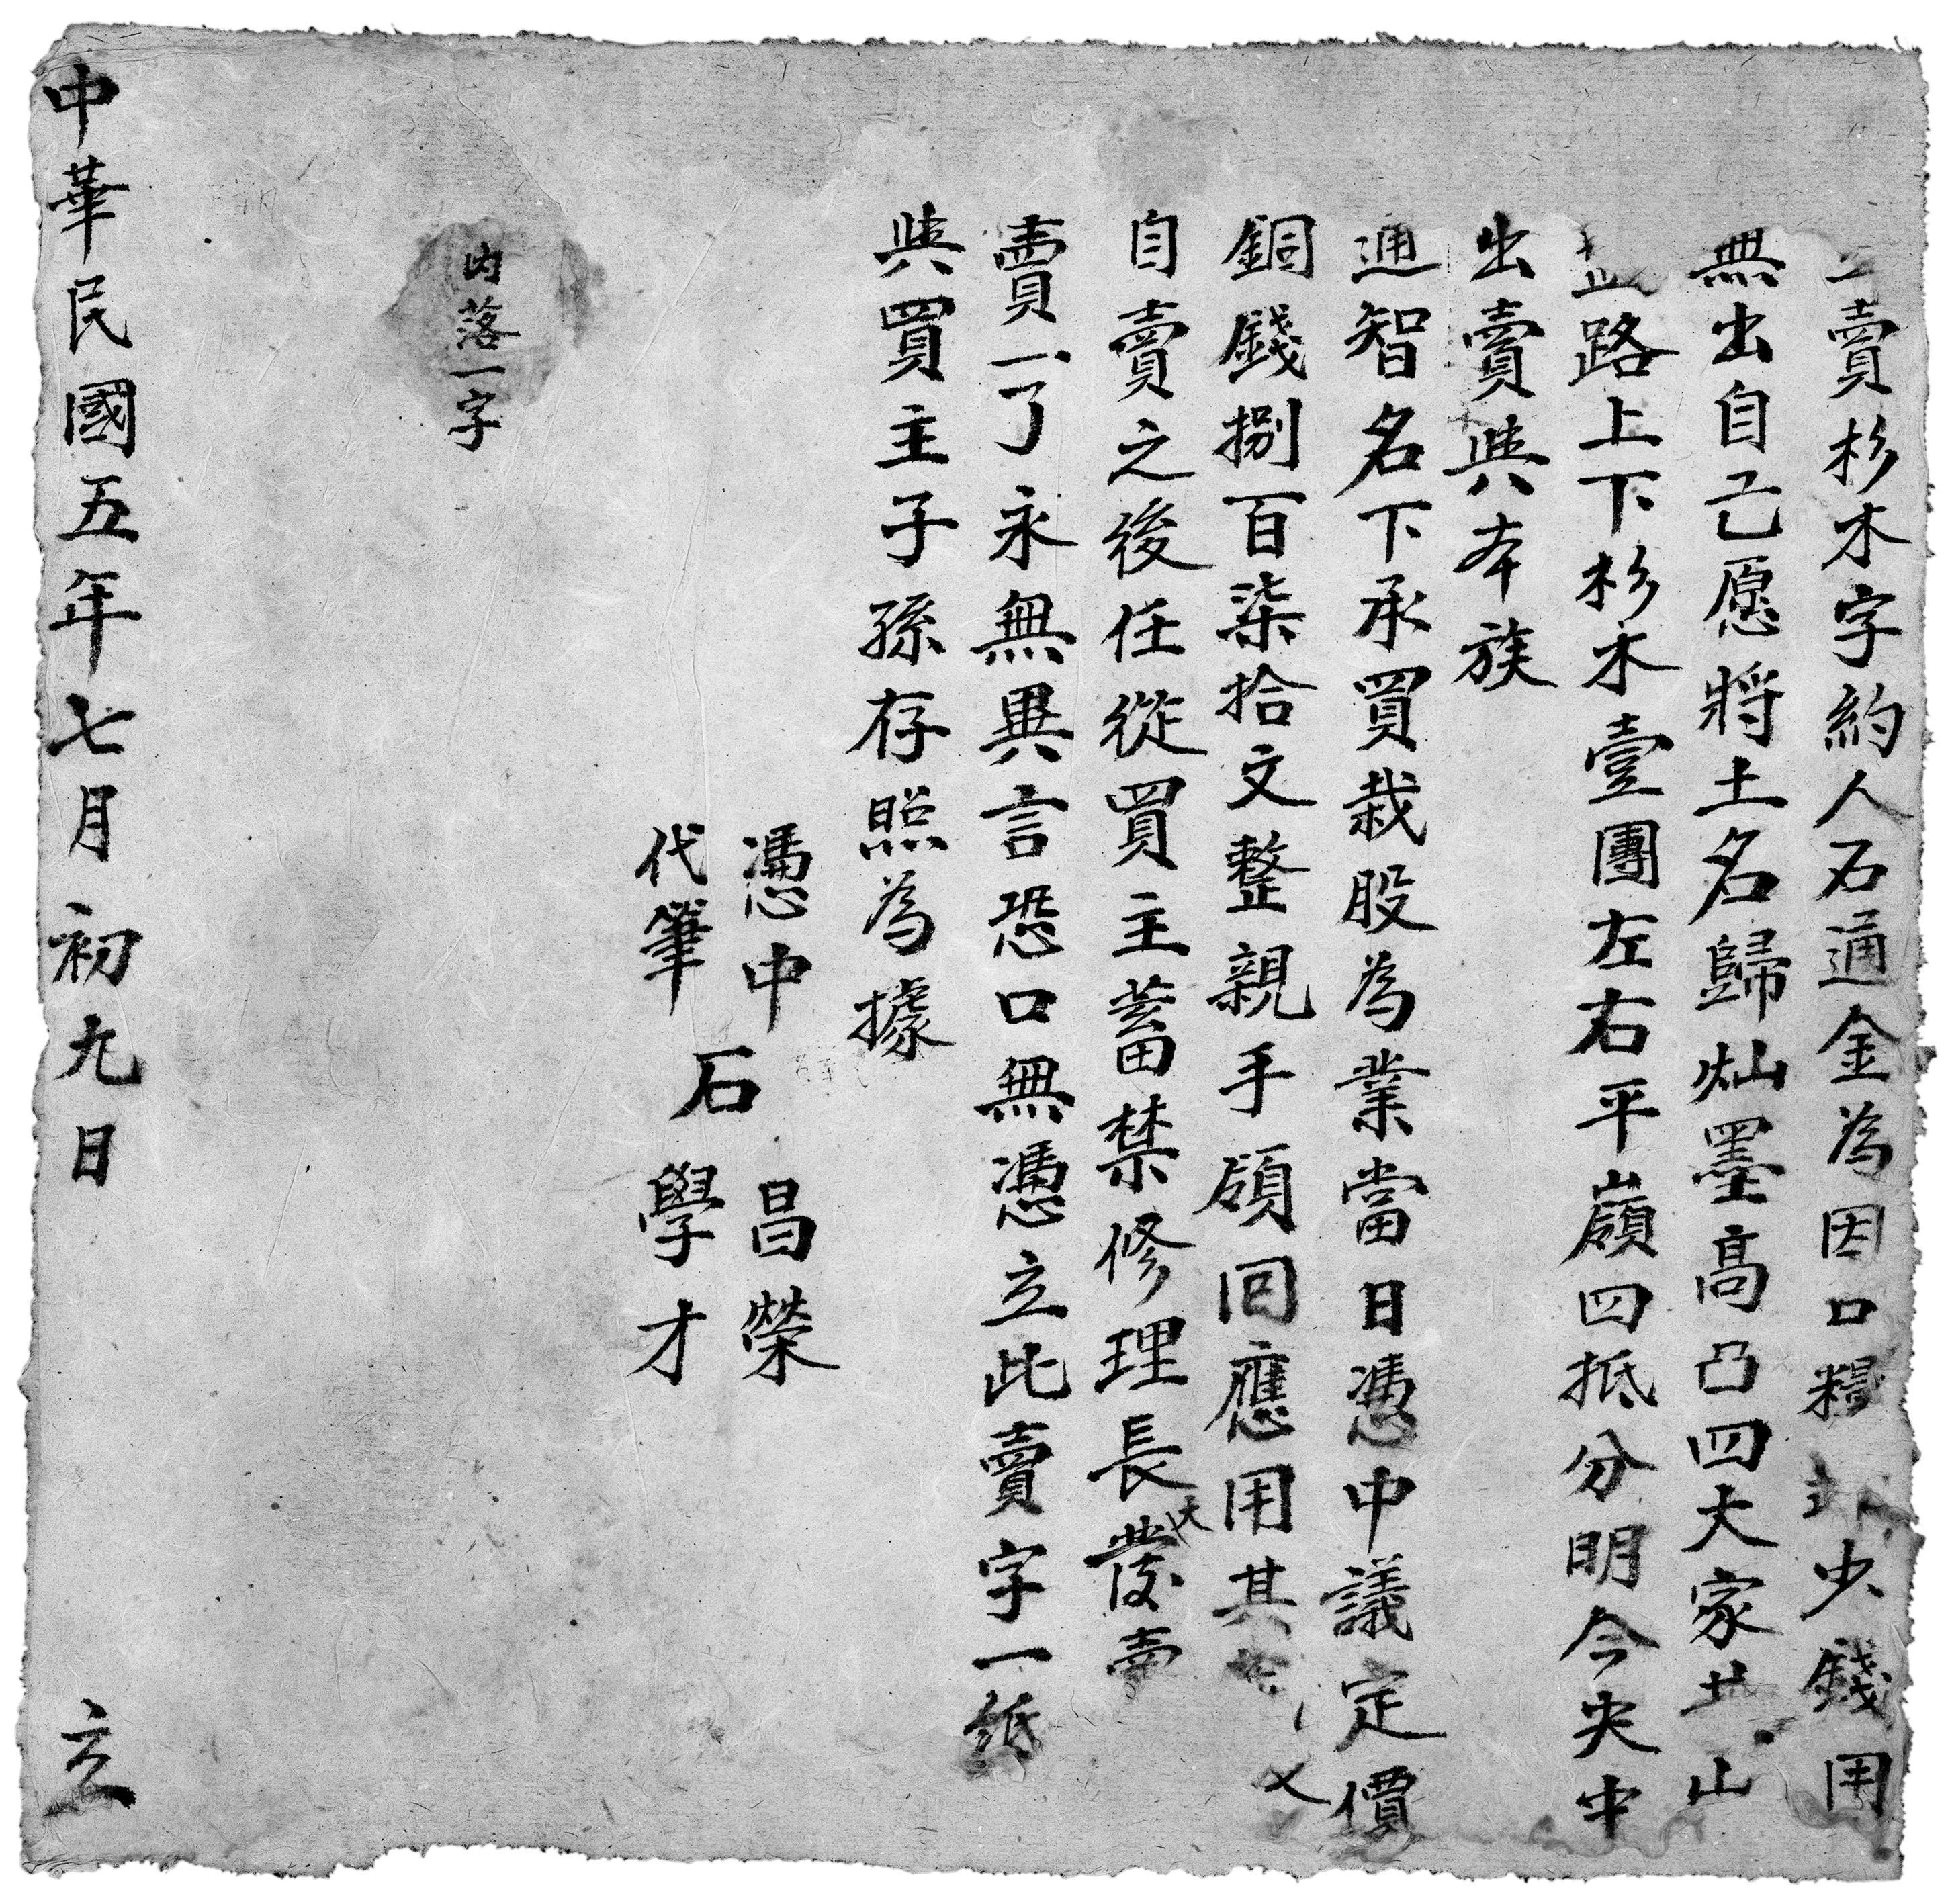 立賣杉木字約人石通金為因口糧缺少錢用
無出自己愿將土名歸灿墨高凸四大家山
路上下杉木壹團左右平嶺四抵分明今央中
出賣與本族
通智名下承買栽股為業當日憑中議定價
銅錢捌百柒拾文整親手領回應用其
自賣之後任從買主蓄禁修理長大發賣
賣一了永無異言恐口無憑立此賣字一紙
與買主子孫存照為據
憑中 石昌榮
代筆 學才
內落一字
中華民國五年七月初九日 立